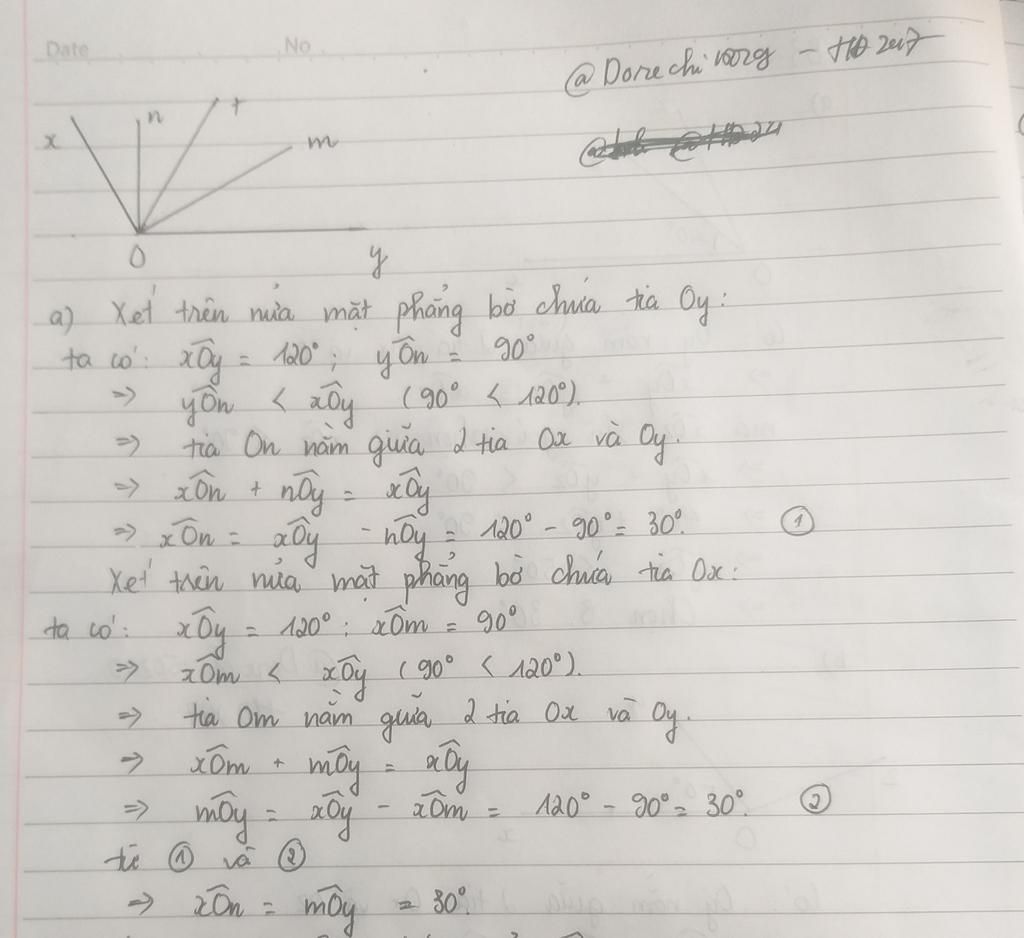 Date No
@Donechi1002g - HD2017
x n t m
O y
a) Xét trên nửa mặt phẳng bờ chứa tia Oy:
ta có: xÔy = 120°; yÔn = 90°
⇒ yÔn < xÔy (90° < 120°).
⇒ tia On nằm giữa 2 tia Ox và Oy.
⇒ xÔn + nÔy = xÔy
⇒ xÔn = xÔy - nÔy = 120° - 90° = 30°. ①
Xét trên nửa mặt phẳng bờ chứa tia Ox:
ta có: xÔy = 120°; xÔm = 90°
⇒ xÔm < xÔy (90° < 120°).
⇒ tia Om nằm giữa 2 tia Ox và Oy.
⇒ xÔm + mÔy = xÔy
⇒ mÔy = xÔy - xÔm = 120° - 90° = 30°. ②
từ ① và ②
⇒ xÔn = mÔy = 30°.